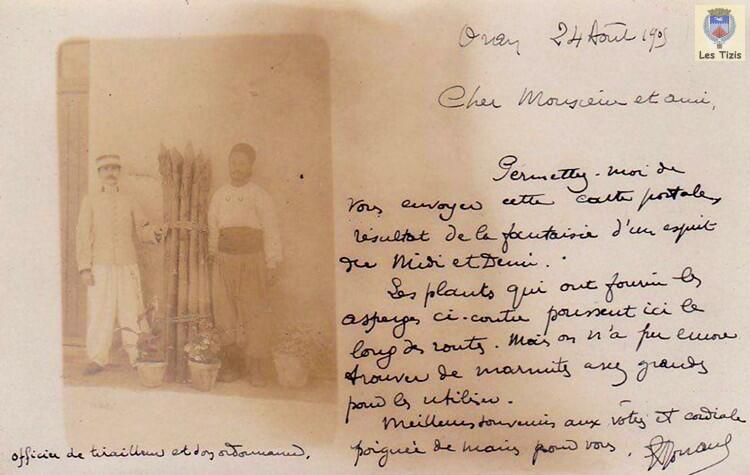 Oran 24 Août 1905
Les Tizis
Cher Monsieur et ami,
Permettez-moi de
vous envoyer cette carte postale,
résultat de la fantaisie d'un esprit
du Midi et Demi.
Les plants qui ont fourni les
asperges ci-contre poussent ici le
long des routes. Mais on n'a pu encore
trouver de marmites assez grandes
pour les utiliser.
Meilleurs souvenirs aux vôtres et cordiale
poignée de mains pour vous.
officier de tirailleur et son ordonnance.